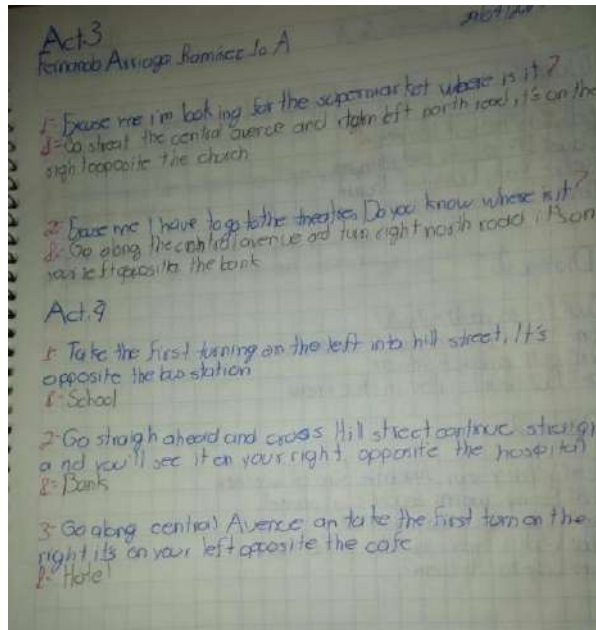 Act3
Fernando Arriaga Ramirez 1o A
1- Excuse me i'm looking for the supermarket where is it?
R= Go streat the central avence and left north road, it's on the
opposite the church
2- Excuse me I have to go to the theatre. Do you know where is it?
R- Go along the central avenue and turn right north road it's on
your left opposite the bank
Act.4
1- Take the first turning on the left into hill street, It's
opposite the bus station
R- School
2- Go straigh ahead and cross Hill street continue
and you'll see it on your right, opposite the hospital
R= Bank
3- Go along central Avence an take the first turn on the
right its on your left opposite the cafe
R- Hotel